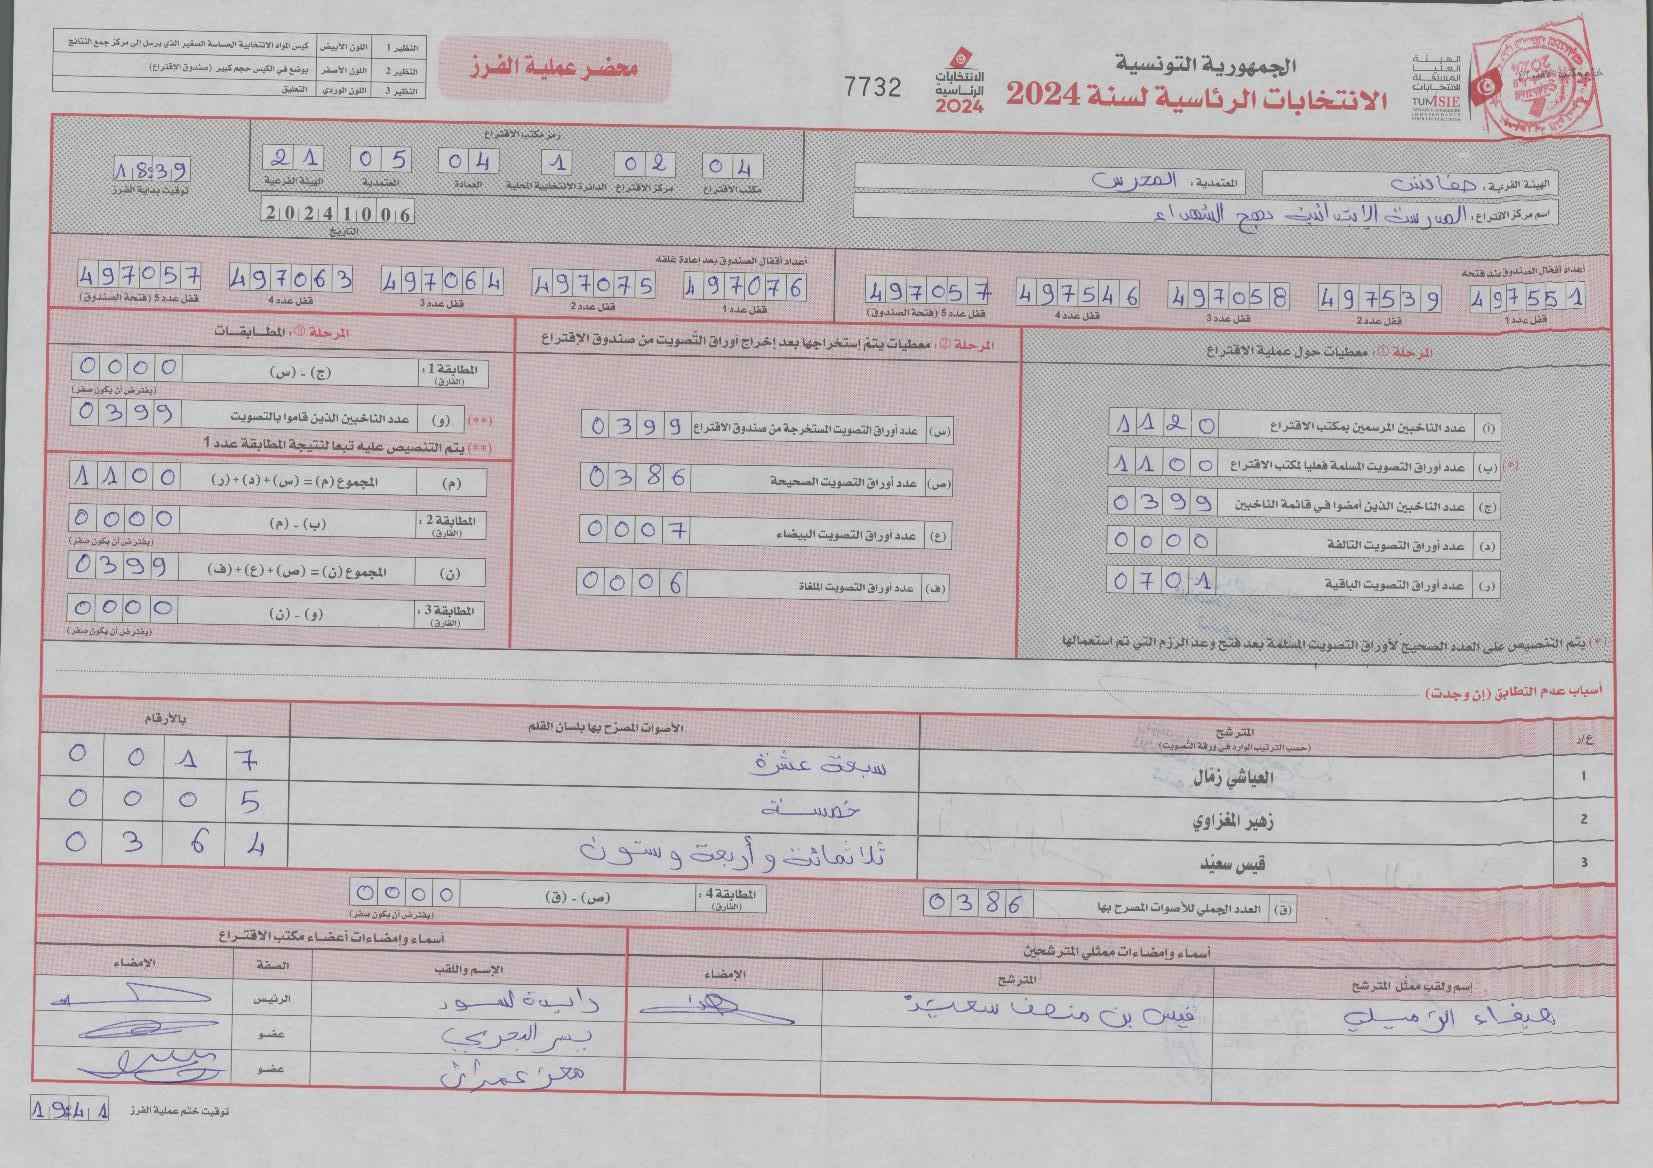 الجمهورية التونسية
الانتخابات الرئاسية لسنة 2024
الهيئة
العليا
المستقلة
للانتخابات
TUNISIE
الانتخابات
الرئاسية
2024
7732
محضر عملية الفرز
النظير 1 اللون الأبيض كيس المواد الانتخابية الحساسة الصغير الذي يرسل إلى مركز جمع النتائج
النظير 2 اللون الأصفر يوضع في الكيس حجم كبير (صندوق الاقتراع)
النظير 3 اللون الوردي التعليق
الهيئة الفرعية: صفاقس
المعتمدية: المحرس
اسم مركز الاقتراع: المدرسة الإبتدائية نهج الشهداء
رمز مكتب الاقتراع
04 02 1 04 05 21
مكتب الاقتراع مركز الاقتراع الدائرة الانتخابية المحلية العمادة المعتمدية الهيئة الفرعية
20241006
التاريخ
18:39
توقيت بداية الفرز
أعداد أقفال الصندوق عند فتحه
497551 497539 497058 497546 497057
قفل عدد 1 قفل عدد 2 قفل عدد 3 قفل عدد 4 قفل عدد 5 (فتحة الصندوق)
أعداد أقفال الصندوق بعد إعادة غلقه
497076 497075 497064 497063 497057
قفل عدد 1 قفل عدد 2 قفل عدد 3 قفل عدد 4 قفل عدد 5 (فتحة الصندوق)
المرحلة ①: معطيات حول عملية الاقتراع
(أ) عدد الناخبين المرسمين بمكتب الاقتراع 1120
(*) (ب) عدد أوراق التصويت المسلمة فعليا لمكتب الاقتراع 1100
(ج) عدد الناخبين الذين أمضوا في قائمة الناخبين 0399
(د) عدد أوراق التصويت التالفة 0000
(ر) عدد أوراق التصويت الباقية 0701
(*) يتم التنصيص على العدد الصحيح لأوراق التصويت المسلمة بعد فتح وعد الرزم التي تم استعمالها
المرحلة ②: معطيات يتم إستخراجها بعد إخراج أوراق التصويت من صندوق الإقتراع
(س) عدد أوراق التصويت المستخرجة من صندوق الاقتراع 0399
(ص) عدد أوراق التصويت الصحيحة 0386
(ع) عدد أوراق التصويت البيضاء 0007
(ف) عدد أوراق التصويت الملغاة 0006
المرحلة ③: المطابقات
المطابقة 1: (الفارق) (ج) - (س) 0000
(يفترض أن يكون صفر)
(**) (و) عدد الناخبين الذين قاموا بالتصويت 0399
(**) يتم التنصيص عليه تبعا لنتيجة المطابقة عدد 1
(م) المجموع (م) = (س) + (د) + (ر) 1100
المطابقة 2: (الفارق) (ب) - (م) 0000
(يفترض أن يكون صفر)
(ن) المجموع (ن) = (ص) + (ع) + (ف) 0399
المطابقة 3: (الفارق) (و) - (ن) 0000
(يفترض أن يكون صفر)
أسباب عدم التطابق (إن وجدت)
ع/ر المترشح الأصوات المصرّح بها بلسان القلم بالأرقام
(حسب الترتيب الوارد في ورقة التصويت)
1 العياشي زمّال سبعة عشرة 0017
2 زهير المغزاوي خمسة 0005
3 قيس سعيّد ثلاثمائة وأربعة وستون 0364
(ق) العدد الجملي للأصوات المصرح بها 0386
المطابقة 4: (الفارق) (ص) - (ق) 0000
(يفترض أن يكون صفر)
أسماء وإمضاءات ممثلي المترشحين
إسم ولقب ممثل المترشح المترشح الإمضاء
هيفاء الزميلي قيس بن منصف سعيد
أسماء وإمضاءات أعضاء مكتب الاقتراع
الإسم واللقب الصفة الإمضاء
الرئيس
يسر البحري عضو
معز عمران عضو
توقيت ختم عملية الفرز 19:41